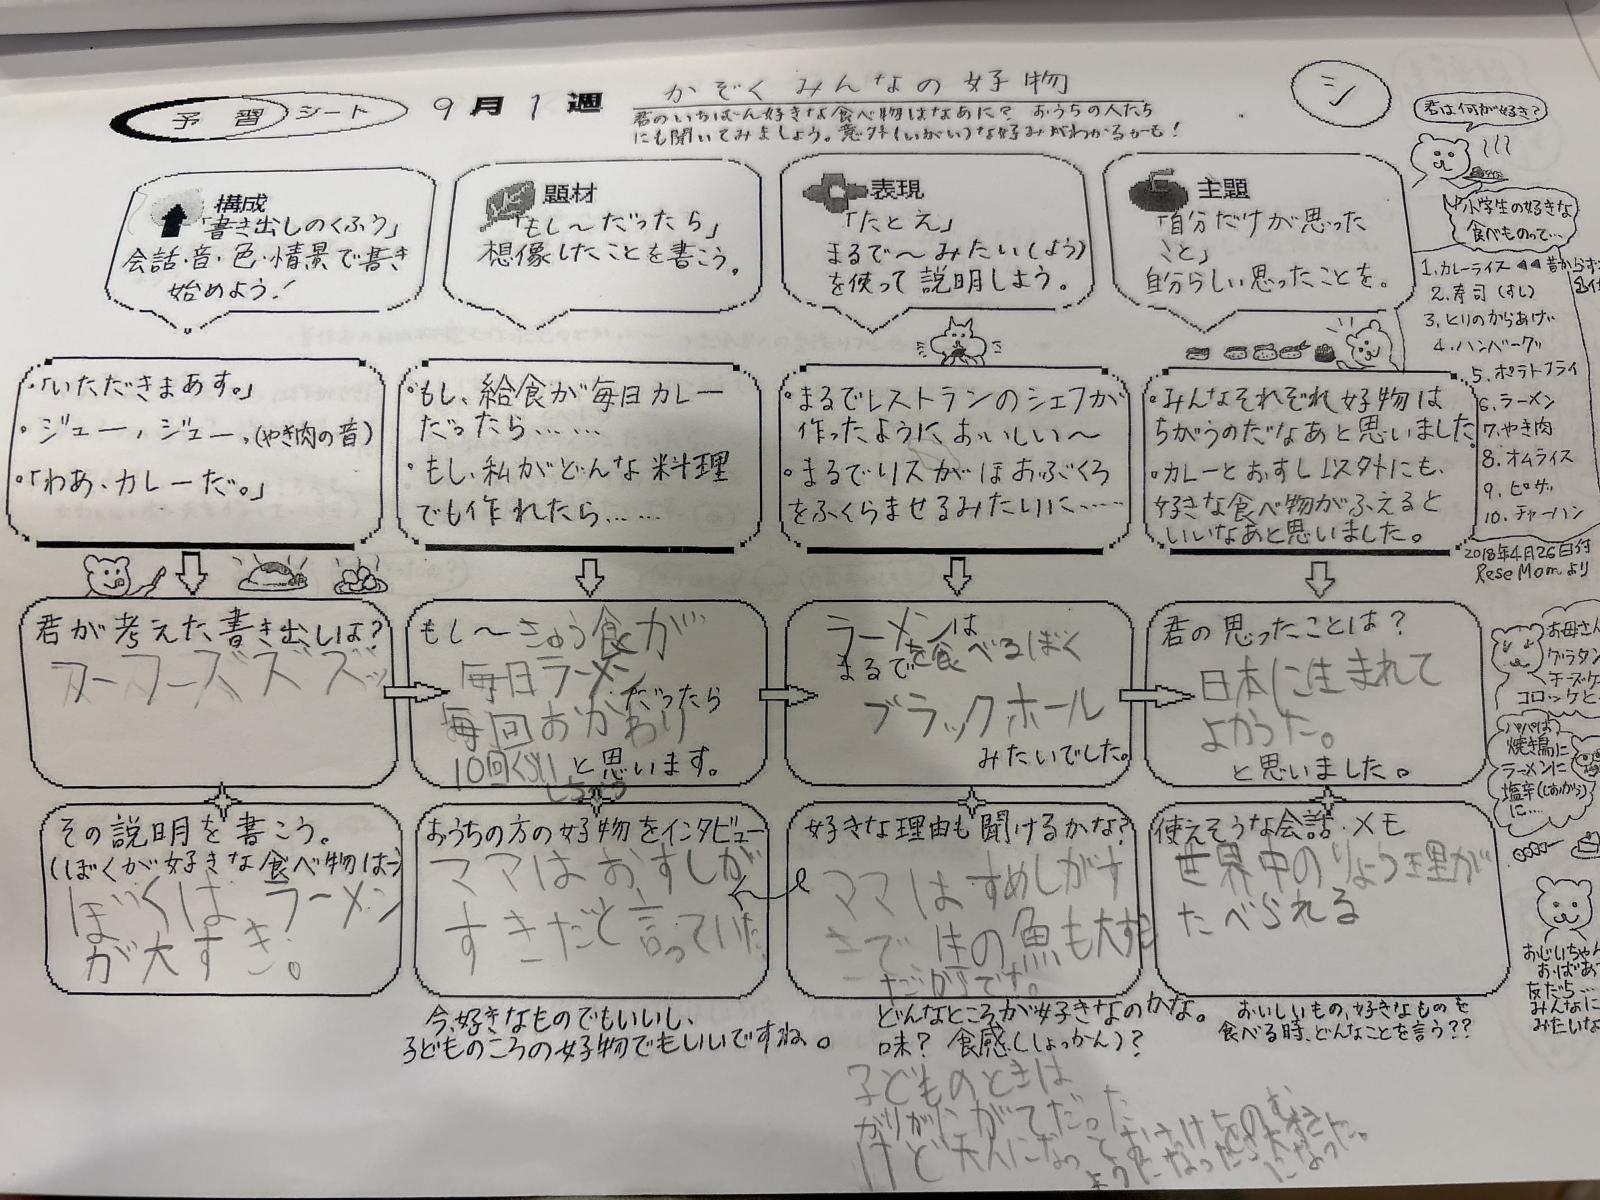 予習シート 9月1週
かぞくみんなの好物
君のいちばん好きな食べ物はなあに? おうちの人たち
にも聞いてみましょう。意外(いがい)な好みがわかるかも!
シ
君は何が好き?
構成
「書き出しのくふう」
会話・音・色・情景で書き
始めよう!
題材
「もし〜だったら」
想像したことを書こう。
表現
「たとえ」
まるで〜みたい(よう)
を使って説明しよう。
主題
「自分だけが思った
こと」
自分らしい思ったことを。
小学生の好きな
食べものって…
1.カレーライス ◀◀昔から
2.寿司(すし)
3.とりのからあげ
4.ハンバーグ
5.ポテトフライ
6.ラーメン
7.やき肉
8.オムライス
9.ピザ
10.チャーハン
2018年4月26日付
ReseMomより
・「いただきまあす。」
・ジュー、ジュー、(やき肉の音)
・「わあ、カレーだ。」
・もし、給食が毎日カレー
だったら……
・もし、私がどんな料理
でも作れたら……
・まるでレストランのシェフが
作ったようにおいしい〜
・まるでリスがほおぶくろ
をふくらませるみたいに……
・みんなそれぞれ好物は
ちがうのだなあと思いました。
・カレーとおすし以外にも、
好きな食べ物がふえると
いいなあと思いました。
君が考えた書き出しは?
フーフーズズズッ
もし〜きゅう食が
毎日ラーメン
だったら
毎回おかわり
10回くらい
しちゃう
と思います。
ラーメンは
まるでを食べるぼく
ブラックホール
みたいでした。
君の思ったことは?
日本に生まれて
よかった。
と思いました。
お母さん
グラタン
チーズケ
コロッケと
パパは
焼き鳥に
ラーメンに
塩辛(しおから)
に…
その説明を書こう。
(ぼくが好きな食べ物は)
ぼくは ラーメン
が大すき。
おうちの方の好物をインタビュー
ママはおすしが
すきだと言っていた
好きな理由も聞けるかな?
ママはすめしがす
きで 生の魚も大すき
だからです。
使えそうな会話・メモ
世界中のりょう理が
たべられる
おじいちゃん
おばあ
友だち…
みんなに
みたいな
今、好きなものでもいいし、
子どものころの好物でもいいですね。
どんなところが好きなのかな。
味? 食感(しょっかん)?
おいしいもの、好きなものを
食べる時、どんなことを言う??
子どものときは
がりがにがてだった
けど大人になっておさけをのむ
ようになったら大すき
になった。